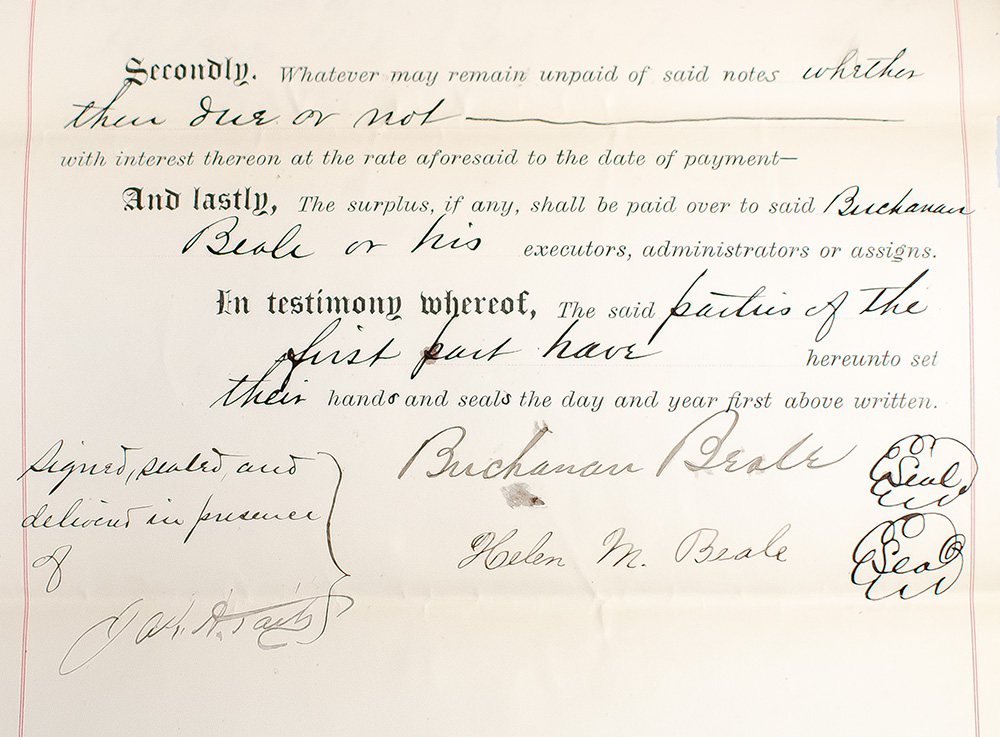 Secondly. Whatever may remain unpaid of said notes whether
then due or not —
with interest thereon at the rate aforesaid to the date of payment—
And lastly, The surplus, if any, shall be paid over to said Buchanan
Beale or his executors, administrators or assigns.
In testimony whereof, The said parties of the
first part have hereunto set
their hands and seals the day and year first above written.
Signed, sealed, and
delivered in presence
of
Buchanan Beale Seal
Helen M. Beale Seal